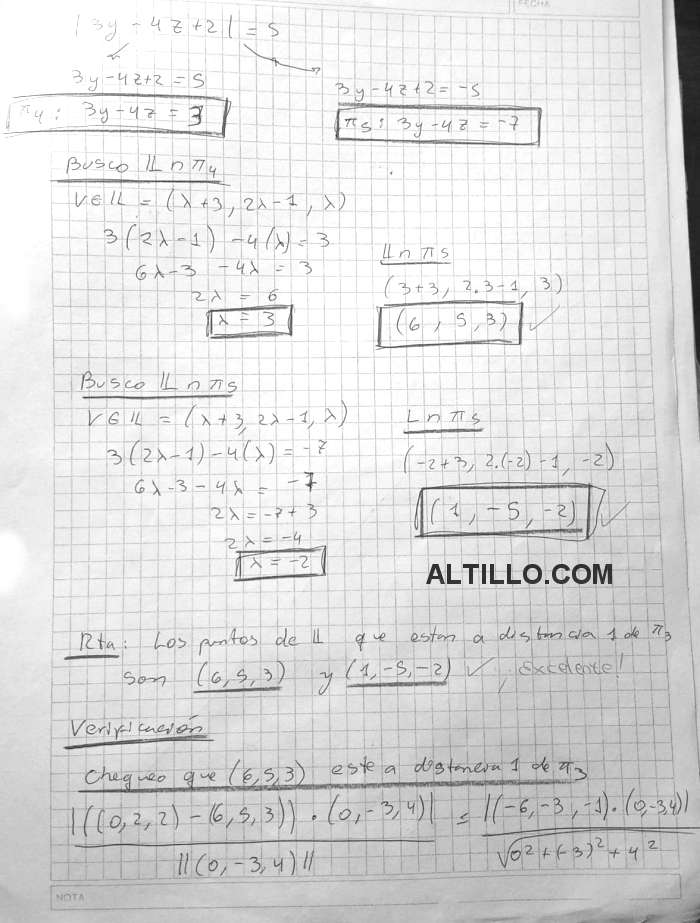 FECHA
|3y - 4z + 2| = 5
3y - 4z + 2 = 5
π4: 3y - 4z = 3
3y - 4z + 2 = -5
π5: 3y - 4z = -7
Busco 𝕃 ∩ π4
V ∈ 𝕃 = (λ+3, 2λ-1, λ)
3(2λ-1) - 4(λ) = 3
6λ - 3 - 4λ = 3
2λ = 6
λ = 3
𝕃 ∩ π5
(3+3, 2.3-1, 3)
(6, 5, 3) ✓
Busco 𝕃 ∩ π5
V ∈ 𝕃 = (λ+3, 2λ-1, λ)
3(2λ-1) - 4(λ) = -7
6λ - 3 - 4λ = -7
2λ = -7 + 3
2λ = -4
λ = -2
L ∩ π5
(-2+3, 2.(-2)-1, -2)
(1, -5, -2) ✓
ALTILLO.COM
Rta: Los puntos de 𝕃 que estan a distancia 1 de π3
son (6,5,3) y (1,-5,-2) ✓, Excelente!
Verificación
Chequeo que (6,5,3) este a distancia 1 de π3
|((0,2,2) - (6,5,3)) . (0,-3,4)| = |(-6,-3,-1).(0,-3,4)|
||(0,-3,4)|| √0²+(-3)²+4²
NOTA